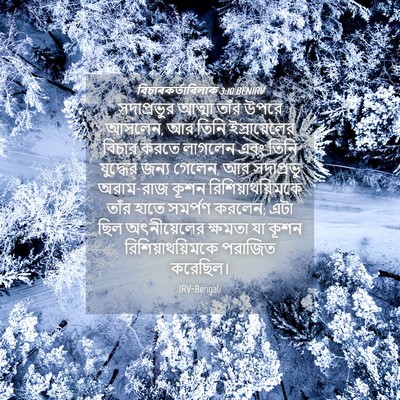 বিচাৰকৰ্তাবিলাক 3:10 BENIRV
সদাপ্রভুর আত্মা তাঁর উপরে
আসলেন, আর তিনি ইস্রায়েলের
বিচার করতে লাগলেন এবং তিনি
যুদ্ধের জন্য গেলেন, আর সদাপ্রভু
অরাম-রাজ কূশন রিশিয়াথয়িমকে
তাঁর হাতে সমর্পণ করলেন; এটা
ছিল অৎনীয়েলের ক্ষমতা যা কূশন
রিশিয়াথয়িমকে পরাজিত
করেছিল।
IRV-Bengali